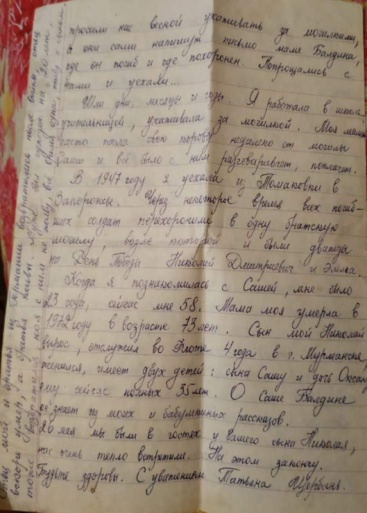 просили нас весной ухаживать за могилками,
а они сами напишут письмо маме Балдина,
где он погиб и где похоронен. Попрощались с
нами и уехали...
Шли дни, месяцы и годы. Я работала в школе
учительницей, ухаживала за могилкой. Моя мама
часто пасла свою корову недалеко от могилы
Саши и всё было с ним разговаривает, поплачет.
В 1947 году я уехала из Томаковки в
Запорожье. Через некоторое время всех погиб-
ших солдат перехоронили в одну братскую
могилу, возле которой и были дважды
на День Победы Николай Дмитриевич и Элла.
Когда я познакомилась с Сашей, мне было
23 года, сейчас мне 58. Мама моя умерла в
1972 году в возрасте 73 лет. Сын мой Николай
вырос, отслужил во Флоте 4 года в г. Мурманске,
женился, имеет двух детей: сына Сашу и дочь Оксану,
ему сейчас полных 35 лет. О Саше Балдине
знает из моих и бабушкиных рассказов.
мы были в гостях у Вашего сына Николая,
нас очень тепло встретили. На этом закончу.
Будьте здоровы. С уважением Татьяна Щербань.
мой и братья из Германии возвратились после войны, отец
вскоре умер, а братья живы